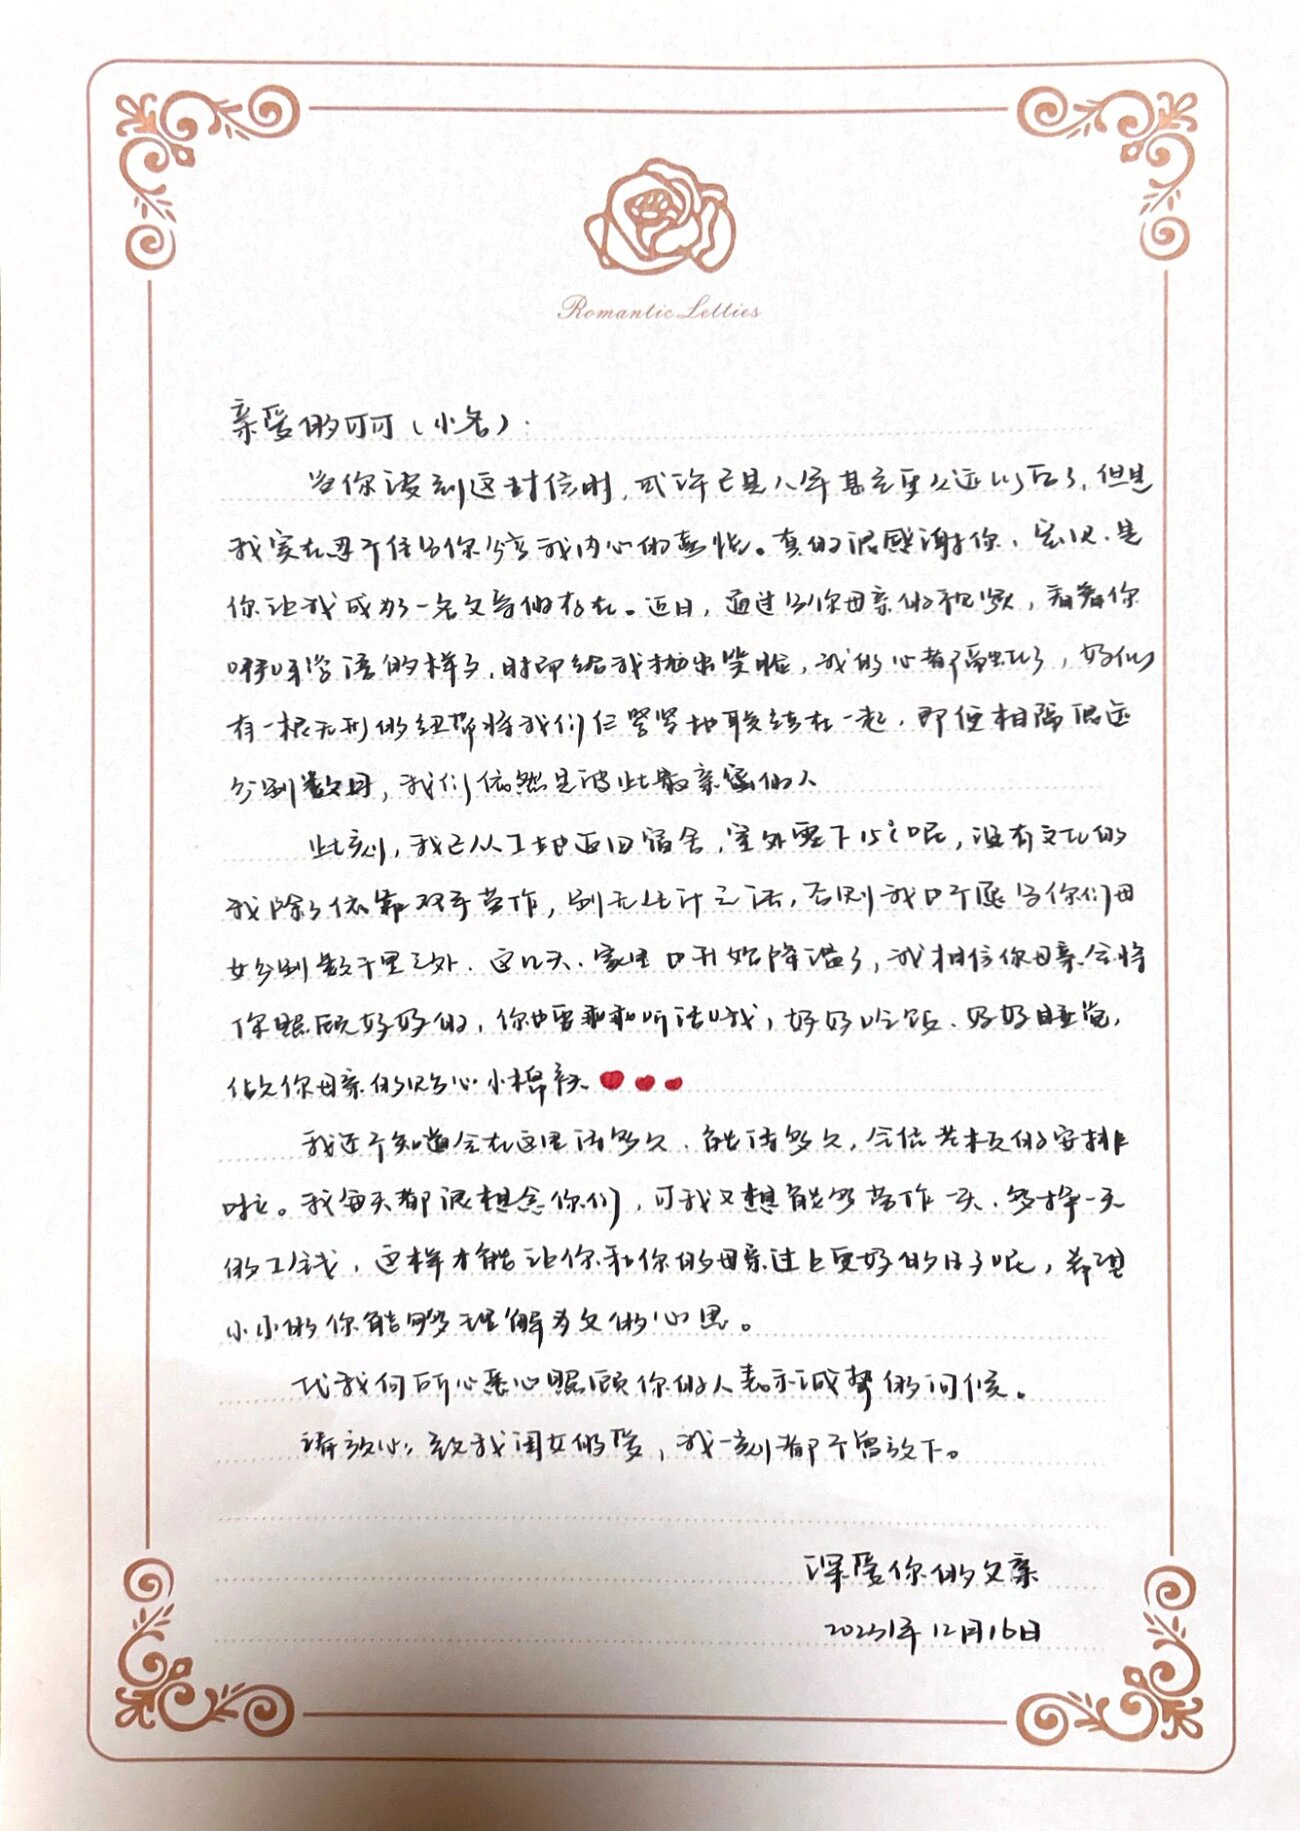 Romantic Letties
亲爱的可可（小名）：
当你读到这封信时，或许已是八年甚至更久远以后了，但是
我实在忍不住与你分享我内心的喜悦。真的很感谢你，宝贝，是
你让我成为一名父亲的存在。近日，通过与你母亲的视频，看着你
呀呀学语的样子，时即给我抛出笑脸，我的心都融化了，好似
有一根无形的纽带将我们仨紧紧地联结在一起，即便相隔很远
分别数月，我们依然是彼此最亲密的人
此刻，我已从工地返回宿舍，室外零下15℃呢，没有文化的
我除了依靠双手劳作，别无生计之法，否则我也不愿与你们母
女分别数千里之外。这几天，家里也开始降温了，我相信你母亲会将
你照顾好好的，你也要乖乖听话哦，好好吃饭、好好睡觉，
做你母亲的贴心小棉袄
我还不知道会在这里待多久，能待多久，全依老板的安排
啦。我每天都很想念你们，可我又想能多劳作一天，多挣一天
的工钱，这样才能让你和你的母亲过上更好的日子呢，希望
小小的你能够理解为父的心思。
代我向所心悉心照顾你的人表示诚挚的问候。
请放心：致我闺女的爱，我一刻都不曾放下。
深爱你的父亲
2023年12月16日